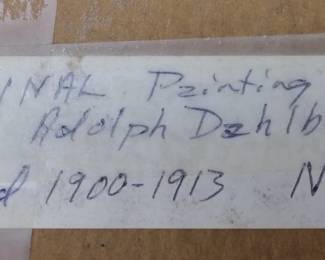 INAL Painting
Adolph Dahlb
d 1900-1913 N